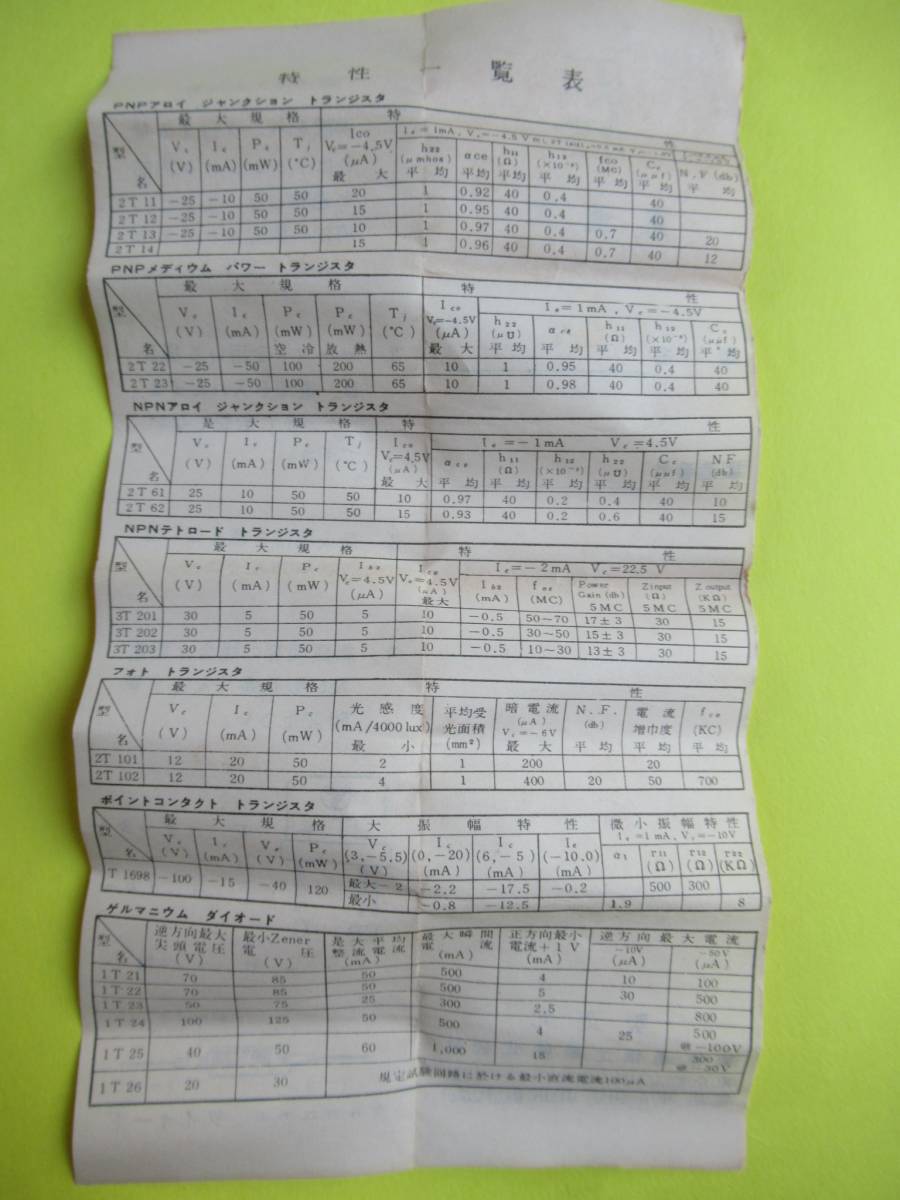 特性一覧表
PNPアロイ ジャンクション トランジスタ
型名 最大規格 特性
Vc (V) Ic (mA) Pc (mW) Tj (°C) Ico Vc=-4.5V (μA) 最大
Ie=1mA, Vc=-4.5V
h22 (μmhos) 平均 αce 平均 h11 (Ω) 平均 h12 平均 fco (MC) 平均 Cc (μμf) 平均 N.F(db) 平均
2T11 -25 -10 50 50 20 1 0.92 40 0.4 40
2T12 -25 -10 50 50 15 1 0.95 40 0.4 40
2T13 -25 -10 50 50 10 1 0.97 40 0.4 0.7 40 20
2T14 15 1 0.96 40 0.4 0.7 40 12
PNPメディウム パワー トランジスタ
型名 最大規格 特性
Vc (V) Ic (mA) Pc (mW) 空冷 Pc (mW) 放熱 Tj (°C) Ico Vc=-4.5V (μA) 最大
Ie=1mA, Vc=-4.5V
h22 (μ℧) 平均 αce 平均 h11 (Ω) 平均 h12 平均 Cc (μμf) 平均
2T22 -25 -50 100 200 65 10 1 0.95 40 0.4 40
2T23 -25 -50 100 200 65 10 1 0.98 40 0.4 40
NPNアロイ ジャンクション トランジスタ
型名 是大規格 特性
Vc (V) Ic (mA) Pc (mW) Tj (°C) Ico Vc=4.5V (μA) 最大
Ie=-1mA Vc=4.5V
αce 平均 h11 (Ω) 平均 h12 平均 h22 (μ℧) 平均 Cc (μμf) 平均 NF (db) 平均
2T61 25 10 50 50 10 0.97 40 0.2 0.4 40 10
2T62 25 10 50 50 15 0.93 40 0.2 0.6 40 15
NPNテトロード トランジスタ
型名 最大規格 特性
Vc (V) Ic (mA) Pc (mW) Ib2 Vc=4.5V (μA) Ico Vc=4.5V (μA) 最大
Ie=-2mA Vc=22.5V
Ib2 (mA) (MC) Power Gain(db) 5MC Zinput (Ω) 5MC Zoutput (KΩ) 5MC
3T201 30 5 50 5 10 -0.5 50-70 17±3 30 15
3T202 30 5 50 5 10 -0.5 30-50 15±3 30 15
3T203 30 5 50 5 10 -0.5 10-30 13±3 30 15
フォト トランジスタ
型名 最大規格 特性
Vc (V) Ic (mA) Pc (mW) 光感度 (mA/4000lux) 最小 平均受光面積 (mm²) 暗電流 (μA) Vc=-6V 最大 N.F. (db) 平均 電流増巾度 平均 fco (KC) 平均
2T101 12 20 50 2 1 200 20
2T102 12 20 50 4 1 400 20 50 700
ポイントコンタクト トランジスタ
型名 最大規格 大振幅特性 微小振幅特性
Ie=1mA, Vc=-10V
Vc (V) Ic (mA) Ve (V) Pc (mW) Vc (3,-5.5) (V) Ic (0,-20) (mA) Ic (6,-5) (mA) Ie (-10.0) (mA) α1 r11 (Ω) r12 (Ω) r22 (KΩ)
T1698 -100 -15 -40 120 最大-2 -2.2 -17.5 -0.2 500 300
最小 -0.8 -12.5 1.9 8
ゲルマニウム ダイオード
型名 逆方向最大尖頭電圧 (V) 最小Zener電圧 (V) 是大平均整流電流 (mA) 最大瞬間電流 (mA) 正方向最小電流+1V (mA) 逆方向最大電流
-10V (μA) -50V (μA)
1T21 70 85 50 500 4 10 100
1T22 70 85 50 500 5 30 500
1T23 50 75 25 300 2.5 800
1T24 100 125 50 500 4 25 500
@-100V
1T25 40 50 60 1,000 15 300
@-30V
1T26 20 30 規定試験回路に於ける最小直流電流100μA